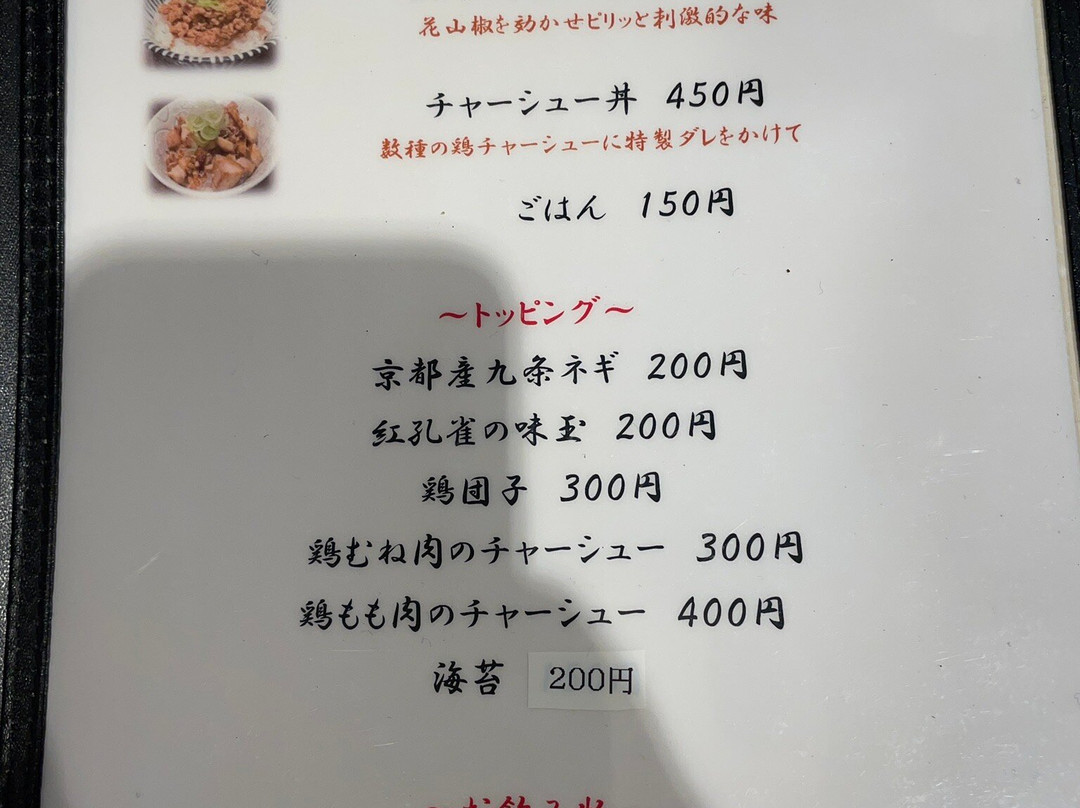 花山椒を効かせピリッと刺激的な味
チャーシュー丼 450円
数種の鶏チャーシューに特製ダレをかけて
ごはん 150円
～トッピング～
京都産九条ネギ 200円
紅孔雀の味玉 200円
鶏団子 300円
鶏むね肉のチャーシュー 300円
鶏もも肉のチャーシュー 400円
海苔 200円